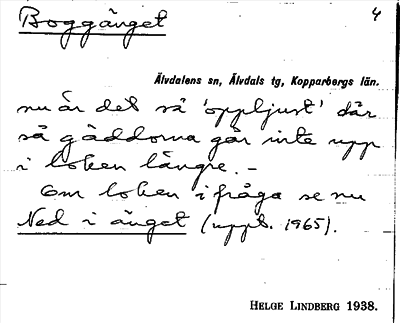 Boggänget 4
Älvdalens sn, Älvdals tg, Kopparbergs län.
nu är det så 'oppljust' där
så gäddorna går inte upp
i loken längre. –
Om loken i fråga se nu
Ned i änget (uppt. 1965).
HELGE LINDBERG 1938.